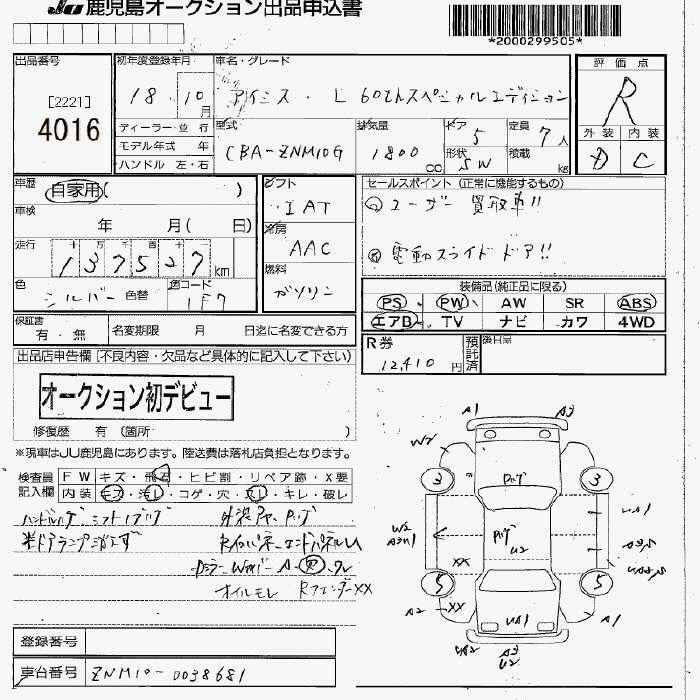 JU 鹿児島オークション出品申込書
*2000299505*
出品番号
[2221]
4016
初年度登録年月
18.10月
ディーラー・並 行
モデル年式 年
ハンドル 左・右
車名・グレード
アイシス・L 60thスペシャルエディション
型式
CBA-ZNM10G
排気量
1800 CC
ドア
5
定員
7人
形状
SW
積載
kg
評価点
R
外装 内装
D C
車歴
自家用( )
車検
年 月( 日)
走行
十万 万 千 百 十
137527km
色
シルバー 色替
色コード
1E7
シフト
IAT
冷房
AAC
燃料
ガソリン
セールスポイント (正常に機能するもの)
ユーザー買取車!!
電動スライドドア!!
装備品(純正品に限る)
PS PW AW SR ABS
エアB TV ナビ カワ 4WD
保証書
有・無
名変期限 月 日迄に名変できる方
R券
12,410円
預託済
後日
出品店申告欄 [不良内容・欠品など具体的に記入して下さい]
オークション初デビュー
修復歴 有 (箇所 )
※現車はJU鹿児島にあります。陸送費は落札店負担となります。
検査員記入欄
FW キズ・飛石・ヒビ割・リペア跡・X要
内装 キズ・汚レ・コゲ・穴・スレ・キレ・破レ
オイルモレ RフェンダーXX
登録番号
車台番号
ZNM10-0038681
A1 A3
W2
3 3
XX
5 5
A2 XX
A1
A3
U2